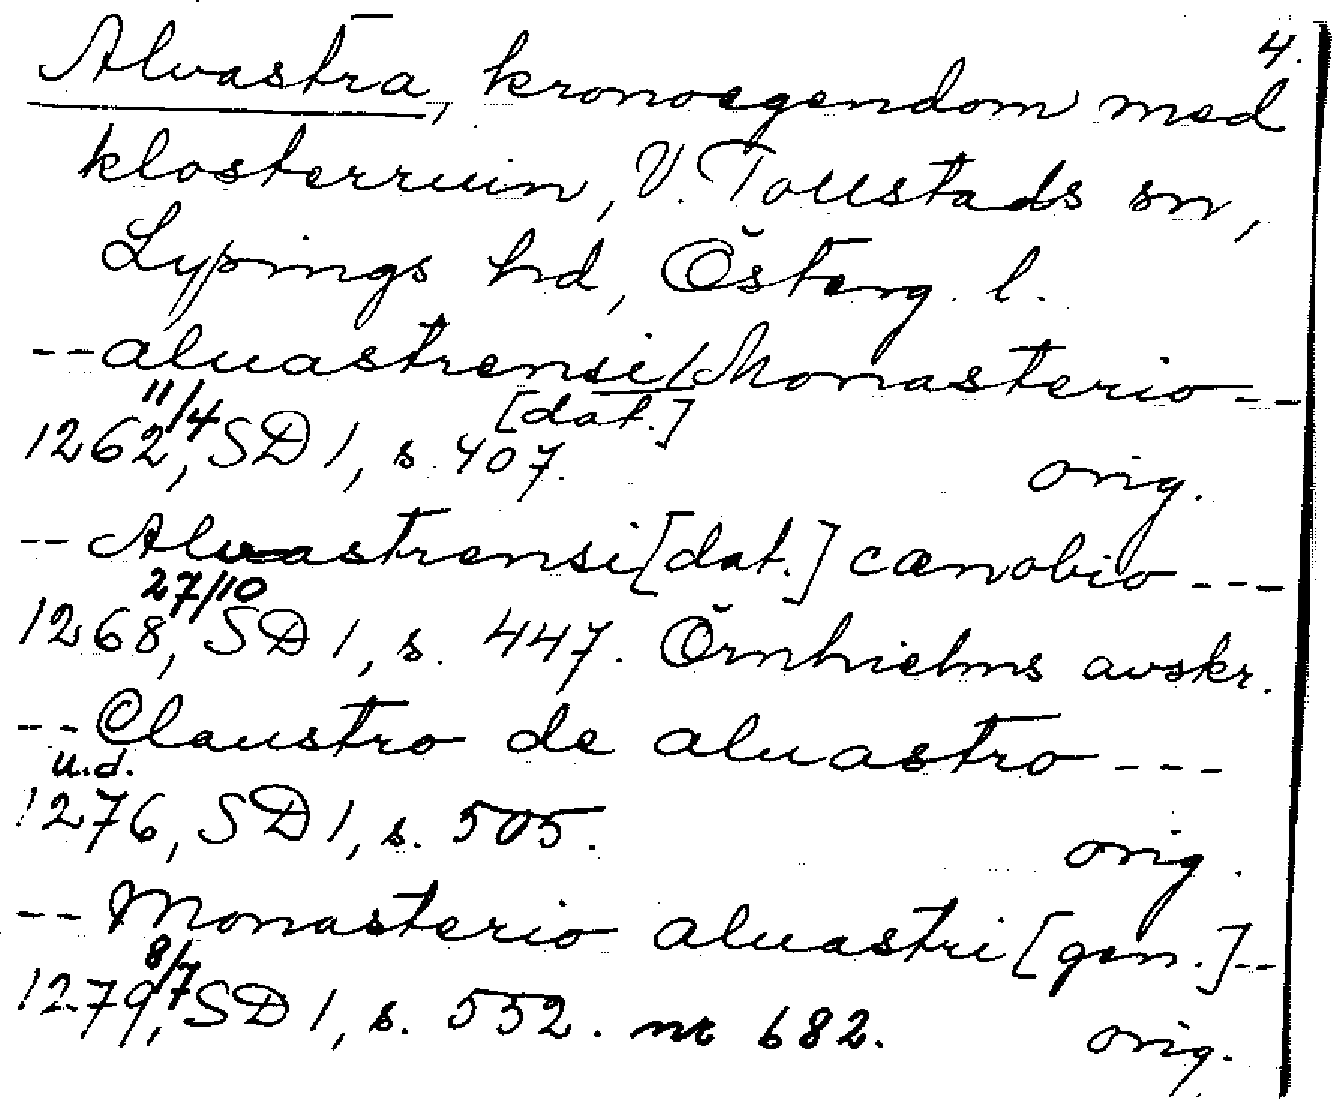 4.
Alvastra, kronoegendom med
klosterruin, V. Tollstads sn,
Lysings hd, Österg. l.
--aluastrensi/Monasterio--
[dat.]
1262 11/4, SD 1, s. 407. orig.
--Aluastrensi [dat.] cænobio---
1268 27/10, SD 1, s. 447. Örnhielms avskr.
--Claustro de aluastro---
u.d.
1276, SD 1, s. 505. orig.
--Monasterio aluastri [gen.]--
1279 8/7, SD 1, s. 552. nr 682. orig.